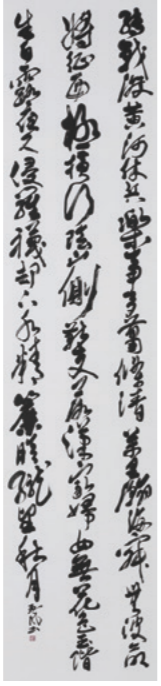 轉戰渡黃河休兵樂事多蕭條清萬里瀚海寂無波命
將征西極橫行陰山側燕支落漢家婦女無花色玉階
生白露夜久侵羅襪却下水精簾玲瓏望秋月